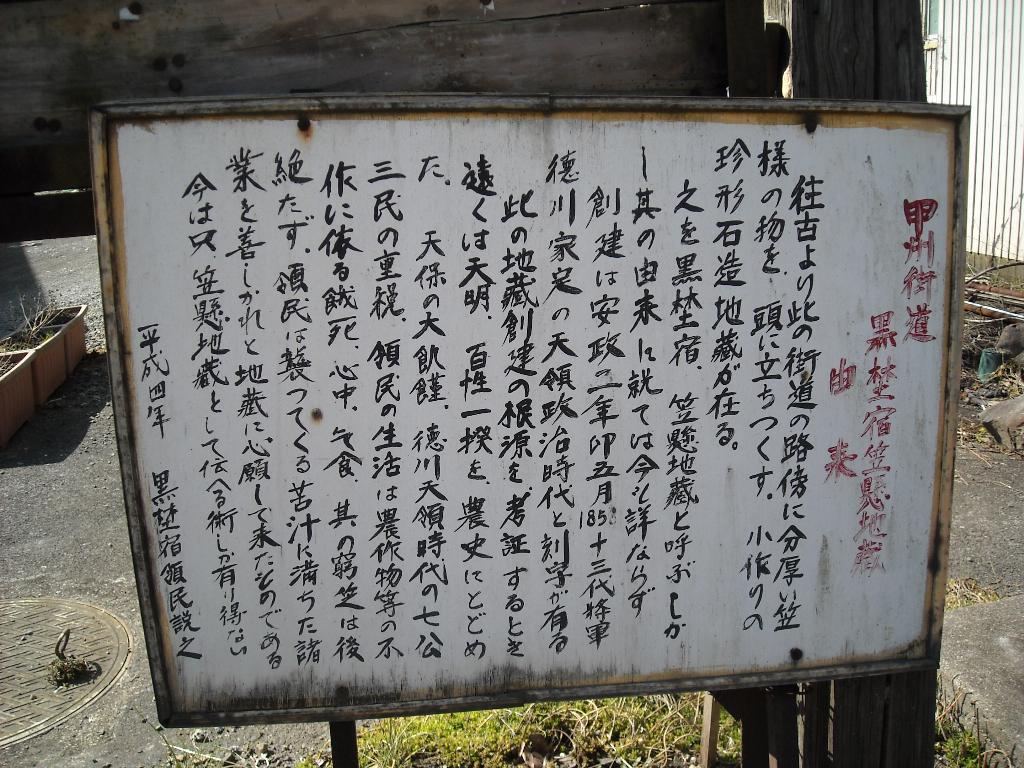 甲州街道
黒埜宿笠懸地蔵
由来
往古より此の街道の路傍に分厚い笠
様の物を、頭に立ちつくす。小作りの
珍形石造地蔵が在る。
之を黒埜宿、笠懸地蔵と呼ぶしか
し其の由来に就ては今も詳ならず
創建は安政二年卯五月1855十三代将軍
徳川家定の天領政治時代と刻字が有る
此の地蔵創建の根源を、考証するとき
遠くは天明、百性一揆を、農史にとどめ
た、天保の大飢饉、徳川天領時代の七公
三民の重税、領民の生活は農作物等の不
作に依る餓死、心中、乞食、其の窮乏は後
絶たず、領民は襲ってくる苦汁に満ちた諸
業を善しかれと地蔵に心願して来たものである
今は只、笠懸地蔵として伝へる術しか有り得ない
平成四年 黒埜宿領民説之